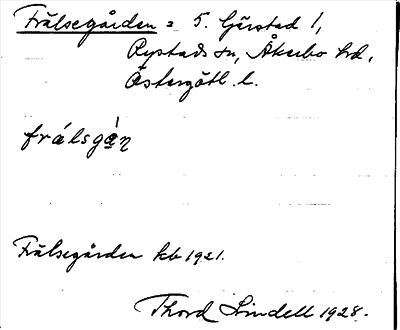 Frälsegården = 5. Gärstad 1,
Rystads sn, Åkerbo hd,
Östergötl. l.
frálsgàn
Frälsegården kb 1921.
Thord Lindell 1928.